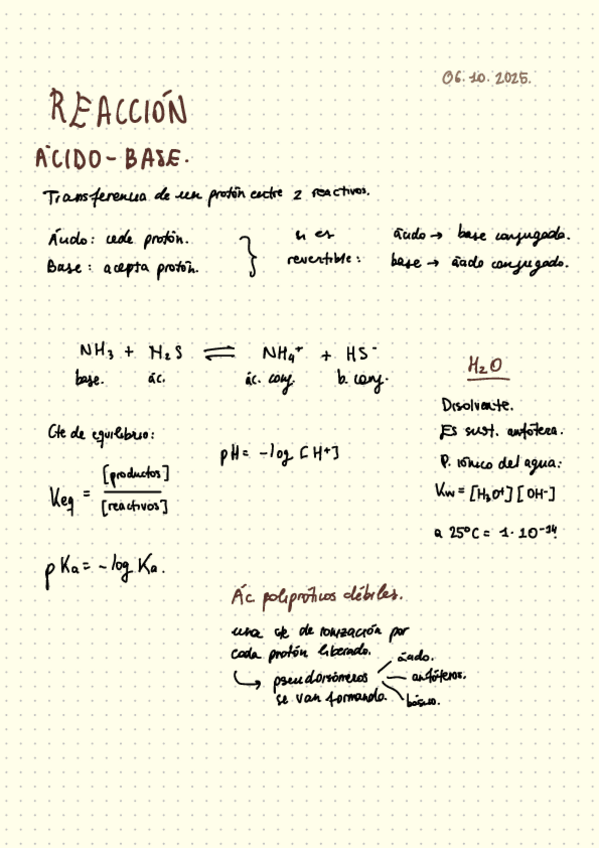 06.10.2025.
REACCIÓN
ÁCIDO-BASE.
Transferencia de un protón entre 2 reactivos.
Ácido: cede protón.
Base: acepta protón.
si es
revertible:
ácido → base conjugada.
base → ácido conjugado.
NH3 + H2S ⇌ NH4+ + HS-
base. ác. ác. conj. b. conj.
Cte de equilibrio:
Keq = [productos]
[reactivos]
pKa = -log Ka.
pH = -log [H+]
H2O
Disolvente.
Es sust. anfótera.
P. iónico del agua:
Kw = [H3O+][OH-]
a 25°C = 1·10-14!
Ác polipróticos débiles.
una cte de ionización por
cada protón liberado.
↳ pseudoisómeros
se van formando.
ácido.
anfóteros.
básico.